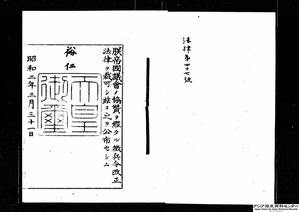 法律第四十七號
朕帝國議會ノ協贊ヲ經タル徴兵令改正
法律ヲ裁可シ玆ニ之ヲ公布セシム
裕仁
天皇
御璽
昭和二年三月三十一日
アジア歴史資料センター